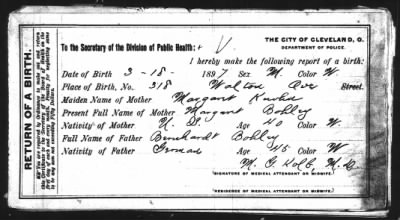 THE CITY OF CLEVELAND, O.
DEPARTMENT OF POLICE.
To the Secretary of the Division of Public Health: + V
I hereby make the following report of a birth:
Date of Birth 3-18- 1897 Sex M. Color W
Place of Birth, No. 318 Walton Ave Street.
Maiden Name of Mother Margaret
Present Full Name of Mother Margaret Bohley
Nativity of Mother U. S. Age 40 Color W
Full Name of Father Bernhardt Bohley
Nativity of Father German Age 45 Color W
M. G. Kolb, M.D.
SIGNATURE OF MEDICAL ATTENDANT OR MIDWIFE.
RESIDENCE OF MEDICAL ATTENDANT OR MIDWIFE.
RETURN OF A BIRTH.